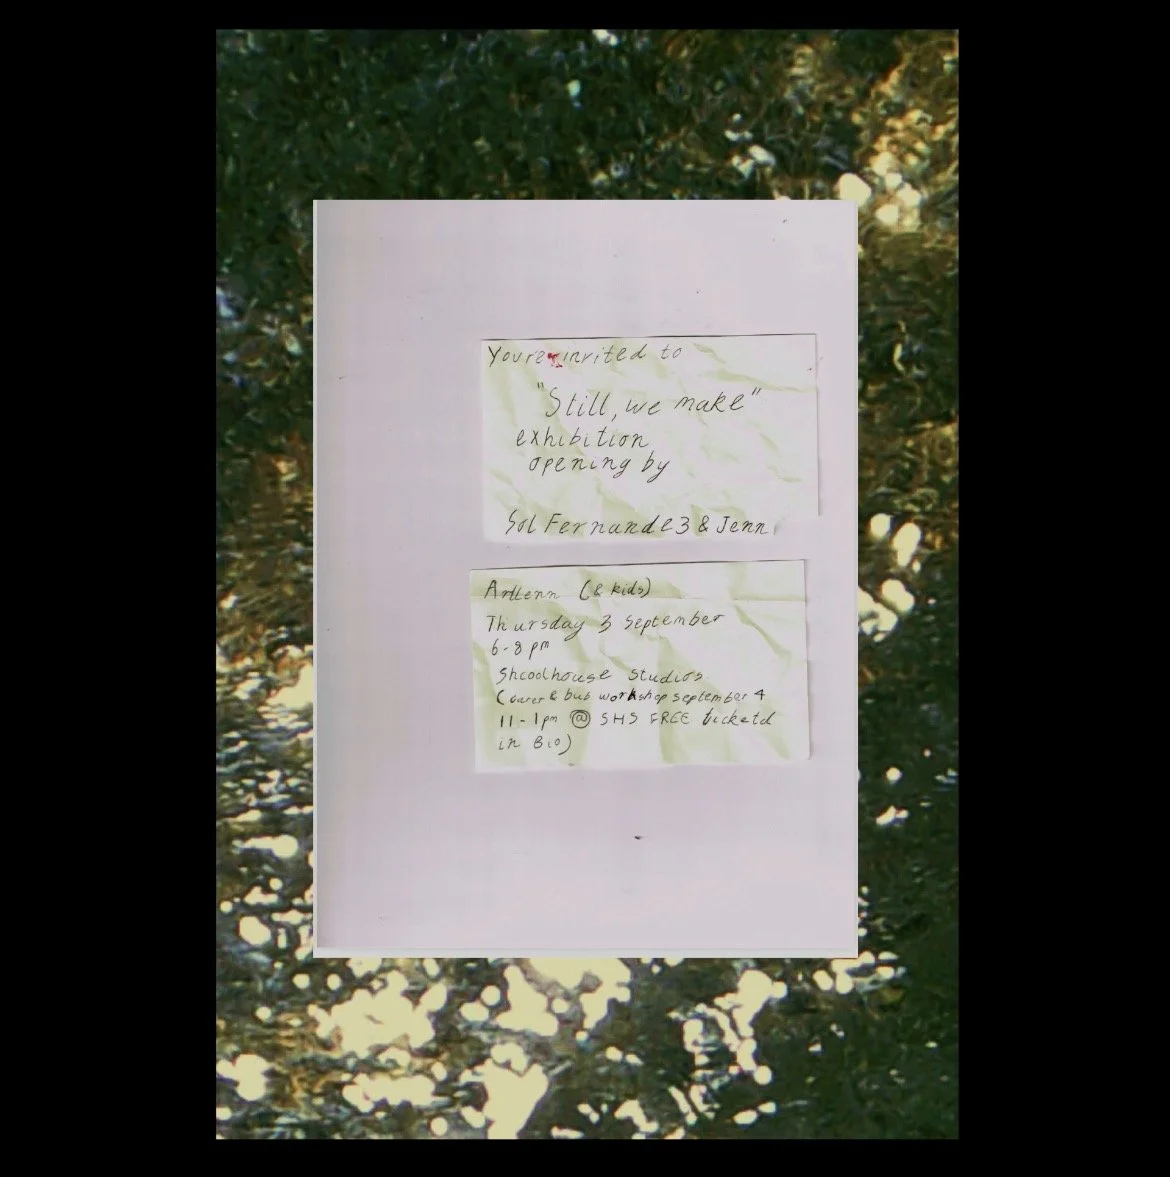 You're invited to
"Still, we make"
exhibition
opening by
Sol Fernandez & Jenn
(& kids)
Thursday 3 September
6-8pm
Shcoolhouse Studios
(carer & bub workshop September 4
11-1pm @ SHS FREE ticketd
in Bio)